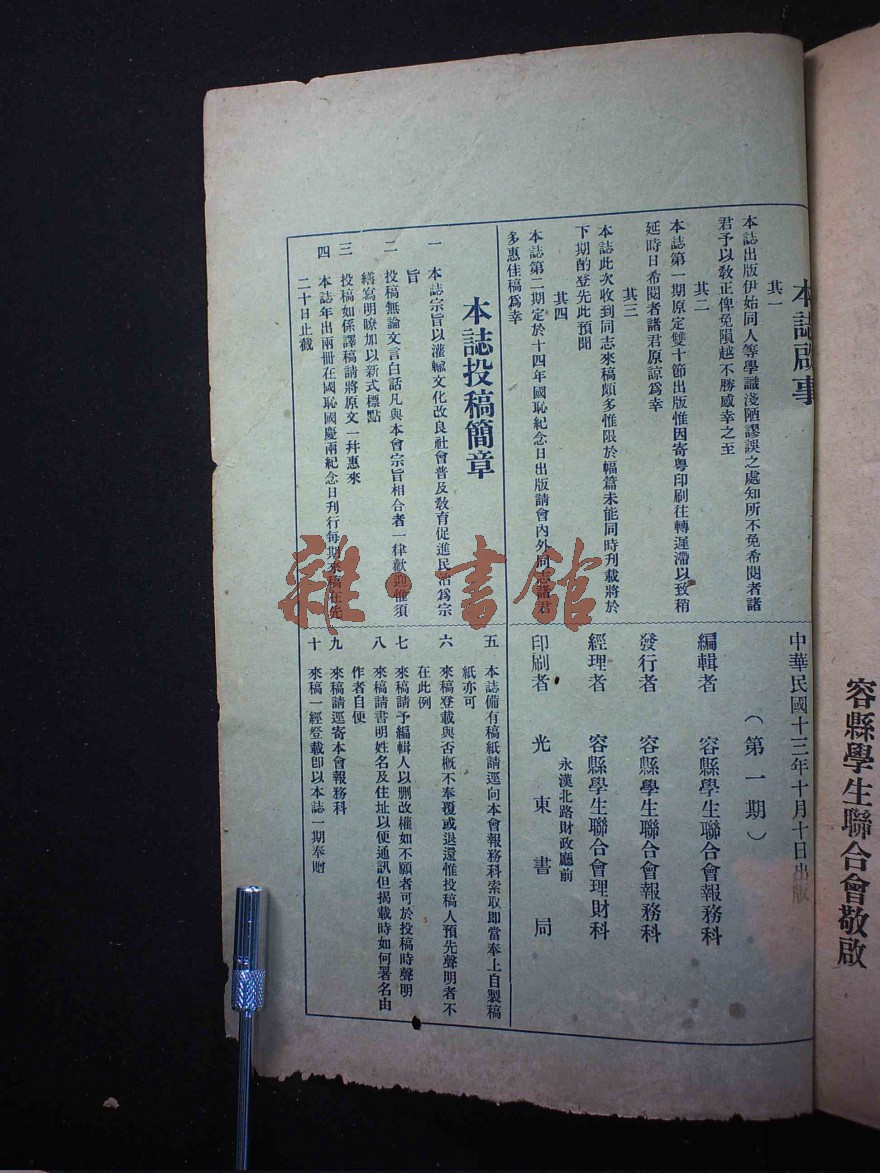 容縣學生聯合會敬啟
本誌啟事
其一
本誌出版伊始同人等學識淺陋謬誤之處知所不免希閱者諸
君予以教正俾免隕越不勝感幸之至
其二
本誌第一期原定雙十節出版惟因寄粵印刷往轉遲滯以致稍
延時日希閱者諸君原諒為幸
其三
本誌此次收到同志來稿頗多惟限於幅篇未能同時刊載將於
下期酌登先此預聞
其四
本誌第二期定於十四年國恥紀念日出版請會內外同志諸君
多惠佳稿爲幸
中華民國十三年十月十日出版
（第一期）
編輯者 容縣學生聯合會報務科
發行者 容縣學生聯合會報務科
經理者 容縣學生聯合會理財科
永漢北路財政廳前
印刷者 光東書局
本誌投稿簡章
一 本誌宗旨以灌輸文化改良社會普及教育促進民治爲宗
旨
二 投稿無論文言白話凡與本會宗旨相合者一律歡迎惟須
繕寫明瞭加以新式標點
三 投稿如係譯稿請將原文一幷惠來
四 本誌年出兩冊在國恥國慶兩紀念日刊行每期來稿在先
二十日止截
五 本誌備有稿紙請逕向本會報務科索取即當奉上自製稿
紙亦可
六 來稿登載與否概不奉覆或退還惟投稿人預先聲明者不
在此例
七 來稿請予編輯人以刪改權如不願者可於投稿時聲明
八 來稿請書明姓名及住址以便通訊但揭載時如何署名由
作者自便
九 來稿請逕寄本會報務科
十 來稿一經登載卽以本誌一期奉贈
雜·書館